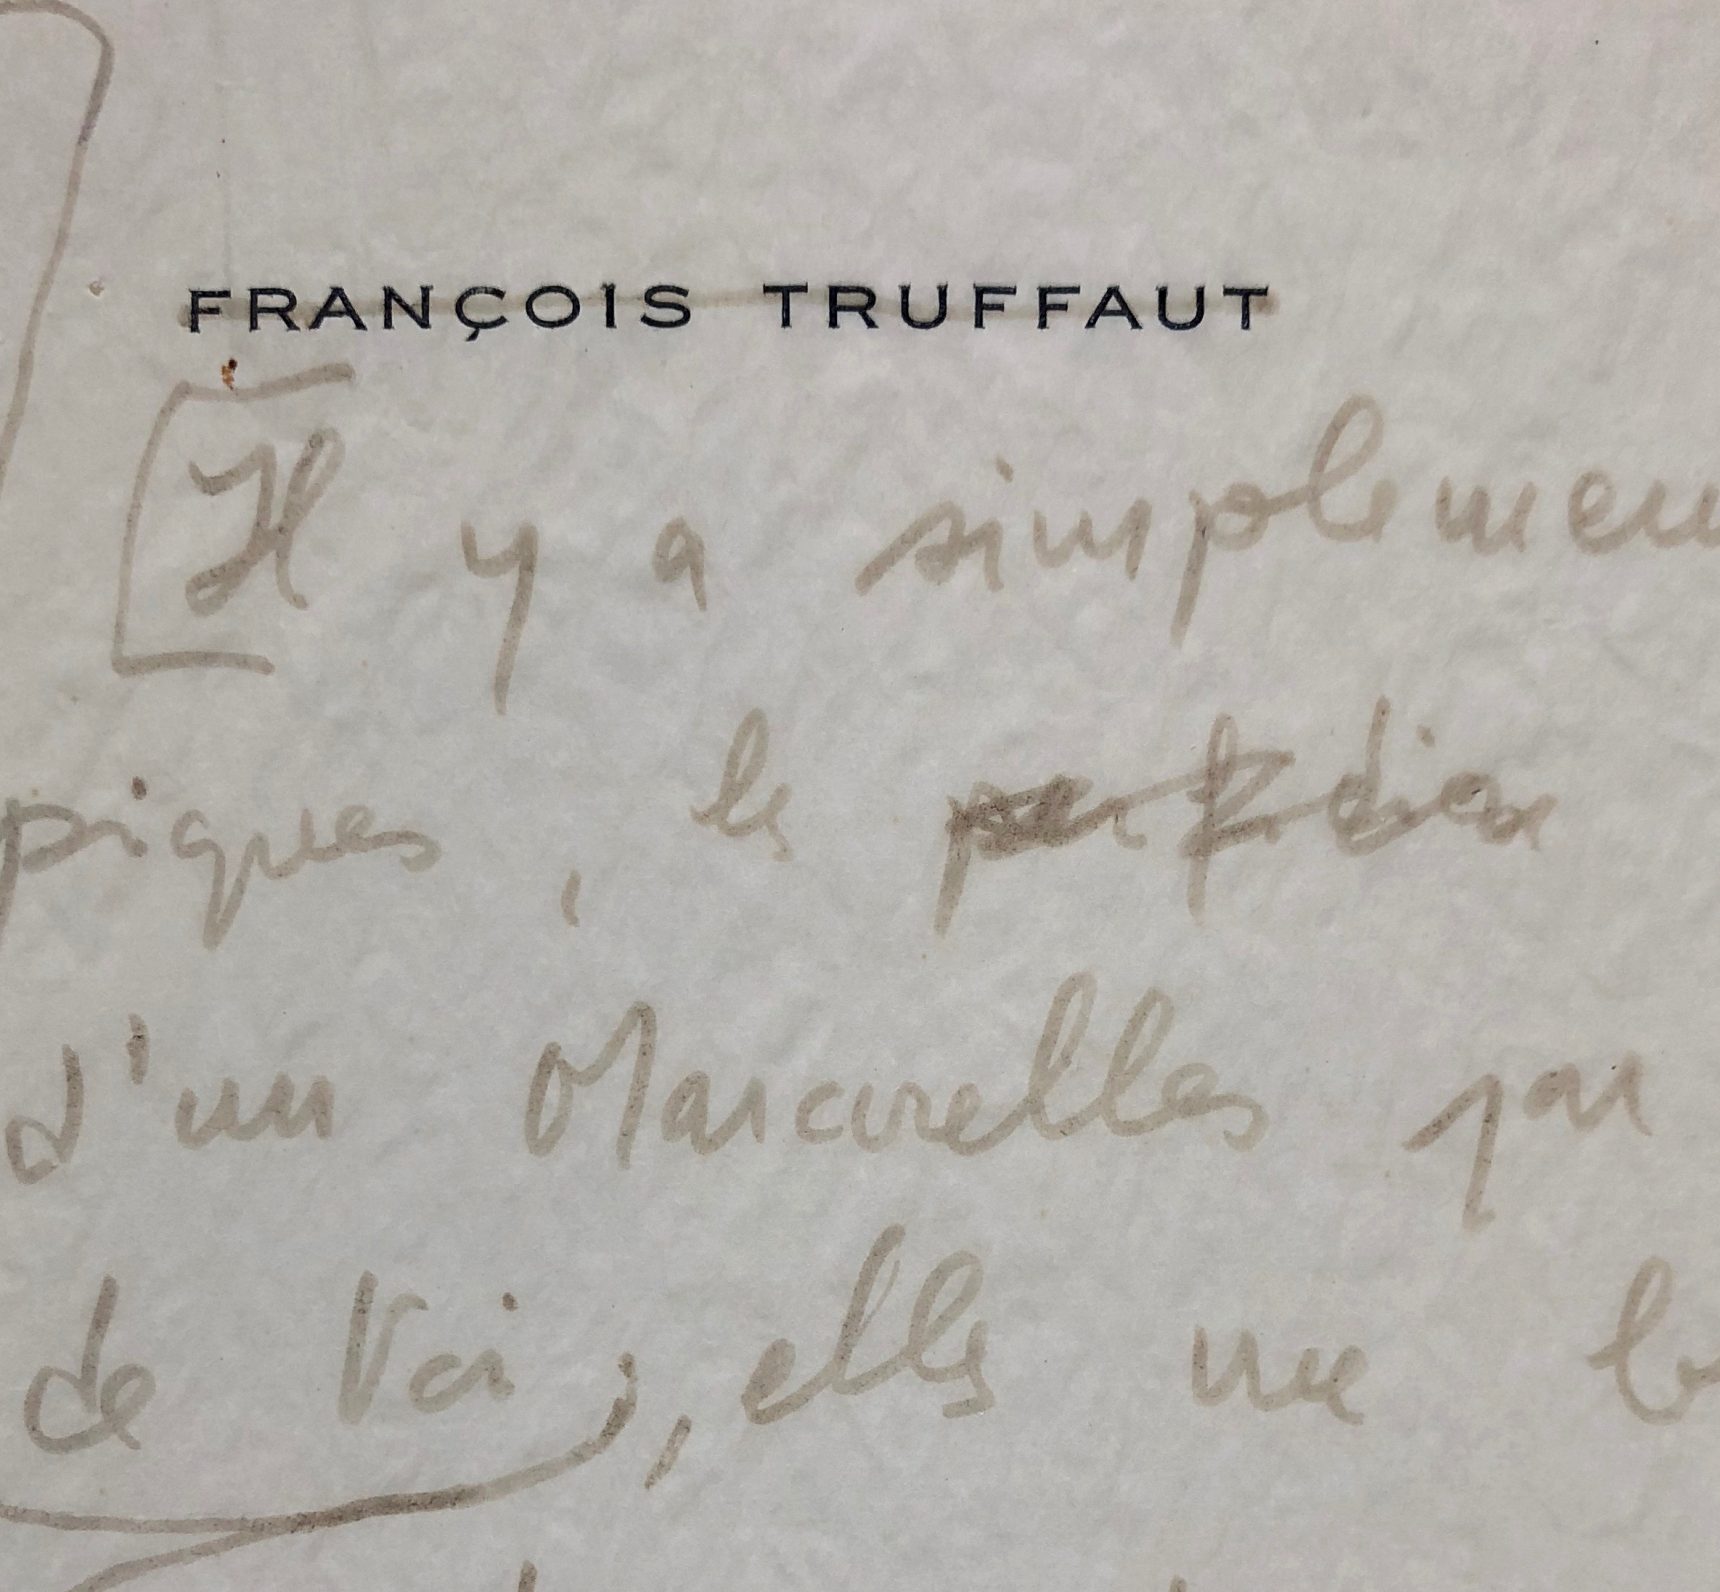 FRANÇOIS TRUFFAUT
Il y a simplemen
piques, les perfidies
d'un Marcorelles par
de Vci, elles me